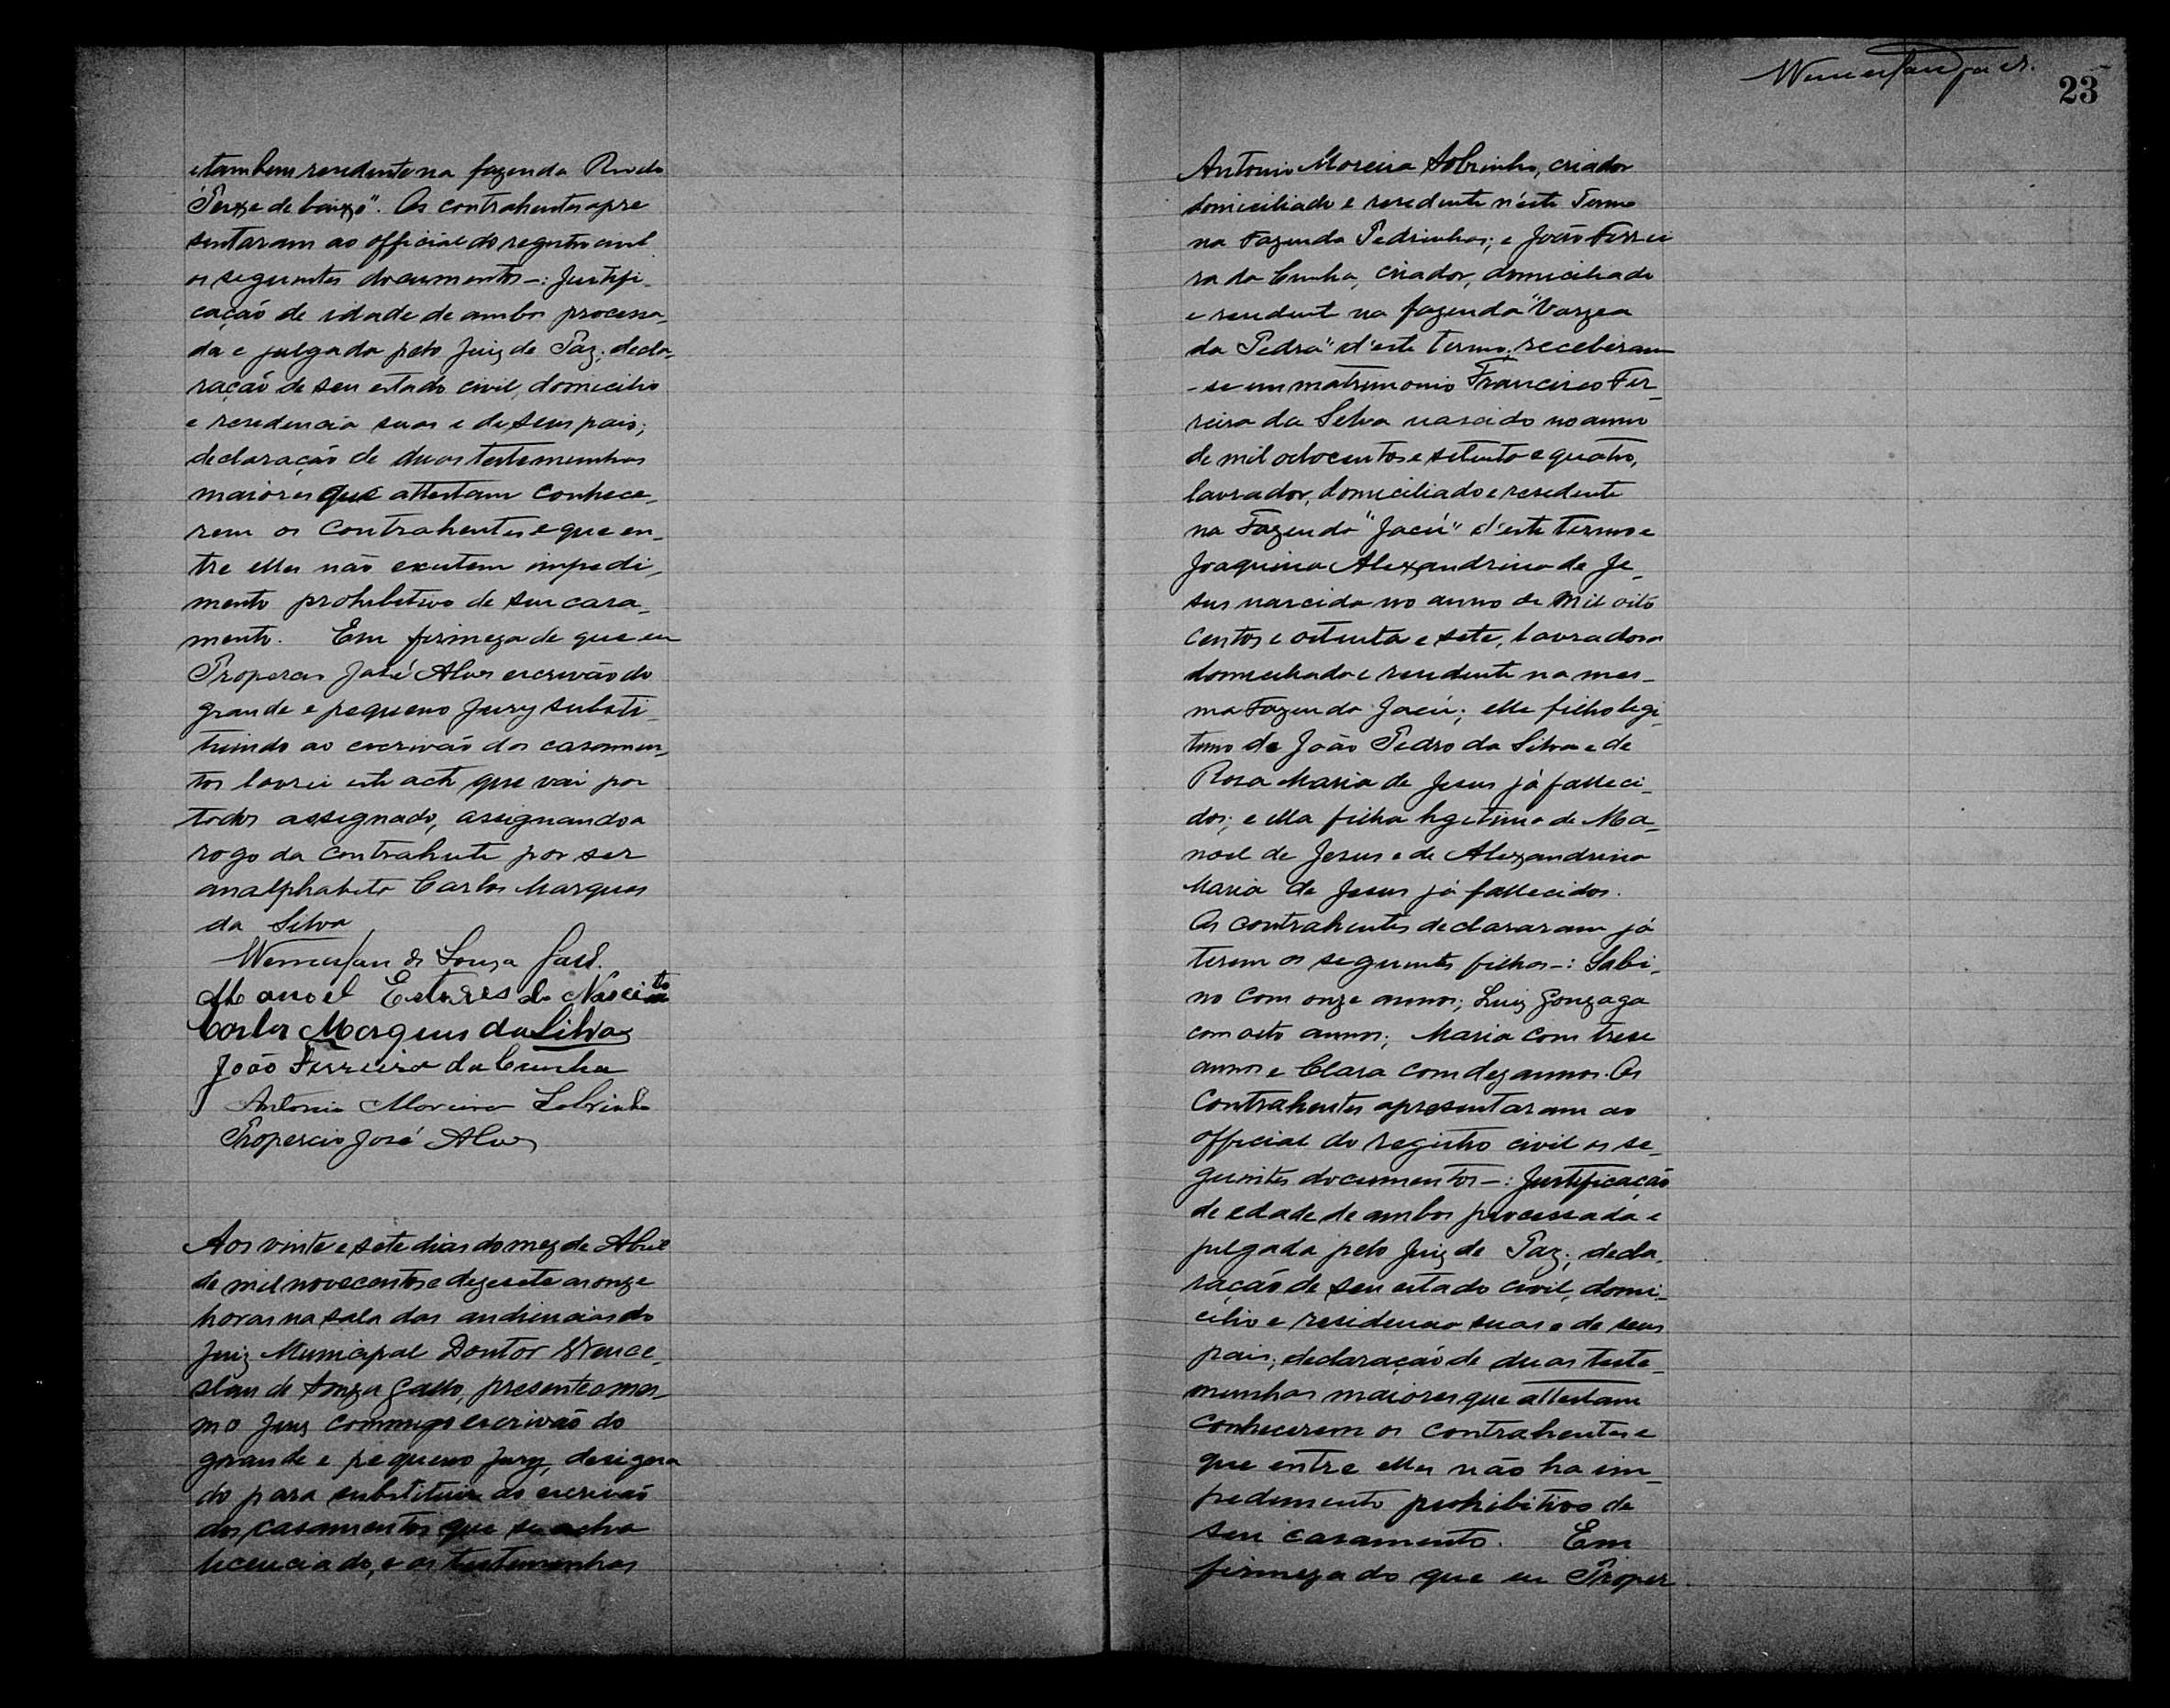 e tambem residente na fazenda Rio do
"Peixe de baixo". Os contrahentes apre
sentaram ao official do registro civil
os seguintes documentos -: Justifi-
cação de idade de ambos processa-
da e julgada pelo Juiz de Paz; decla-
ração de seu estado civil, domicilio
e residencia suas e de seus pais;
declaração de duas testemunhas
maiores que attestam conhece-
rem os contrahentes e que en-
tre elles não existem impedi-
mento prohibitivo de seu casa-
mento. Em firmeza do que eu
Propercio José Alves escrivão do
grande e pequeno Jury substi-
tuindo ao escrivão dos casamen-
tos lavrei este acto que vai por
todos assignado, assignando a
rogo da contrahente por ser
analphabeta Carlos Marques
da Silva
Wenceslau de Souza Gallo.
Manoel do Nascimto
Carlos Marques da Silva
João Ferreira da Cunha
Antonio Moreira Sobrinho
Propercio José Alves
Aos vinte e sete dias do mez de Abril
de mil novecentos e dezesete as onze
horas na sala das audiencias do
Juiz Municipal Doutor Wence-
slau de Souza Gallo, presente o mes-
mo Juiz commigo escrivão do
grande e pequeno Jury, designa
do para substituir ao escrivão
dos casamentos que se acha
licenciado, e as testemunhas
Wenceslau
23
Antonio Moreira Sobrinho, criador
domiciliado e residente n'este Termo
na Fazenda Pedrinhas; e João Ferrei
ra da Cunha, criador, domiciliado
e residente na fazenda "Vargea
da Pedra" d'este termo; receberam
-se em matrimonio Francisco Fer-
reira da Silva nascido no anno
de mil oitocentos e setenta e quatro,
lavrador, domiciliado e residente
na Fazenda "Jacú" d'este termo e
Joaquina Alexandrina de Je-
sus nascida no anno de mil oito
centos e oitenta e sete, lavradora
domiciliada e residente na mes-
ma Fazenda Jacú; elle filho legi-
timo de João Pedro da Silva e de
Rosa Maria de Jesus já falleci-
dos; e ella filha legitima de Ma-
noel de Jesus e de Alexandrina
Maria de Jesus já fallecidos.
Os contrahentes declararam já
terem os seguintes filhos -: Sabi-
no com onze annos; Luiz Gonzaga
com oito annos; Maria com trese
annos e Clara com dez annos. Os
contrahentes apresentaram ao
official do registro civil os se-
guintes documentos -: Justificação
de edade de ambos processada e
julgada pelo Juiz de Paz; decla-
ração de seu estado civil, domi-
cilio e residencia suas e de seus
pais; declaração de duas teste-
munhas maiores que attestam
conhecerem os contrahentes e
que entre elles não ha im-
pedimento prohibitivo de
seu casamento. Em
firmeza do que eu Proper